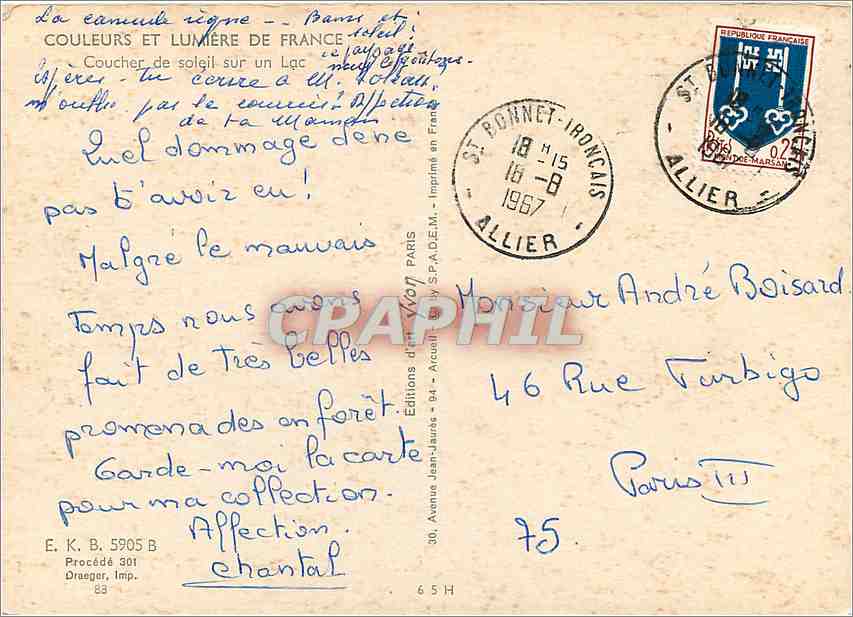 La canicule règne -- Bains et
soleil!
COULEURS ET LUMIÈRE DE FRANCE
Coucher de soleil sur un Lac
paysage
à M.
pas le Affection
de ta Maman
Quel dommage de ne
pas t'avoir eu!
Malgré le mauvais
Temps nous avons
fait de Très belles
promenades en forêt.
Garde-moi la carte
pour ma collection.
Affection.
Chantal
E. K. B. 5905 B
Procédé 301
Draeger, Imp.
83
Éditions d'art Yvon PARIS
30, Avenue Jean-Jaurès - 94 - Arcueil - by S.P.A.D.E.M. - Imprimé en France
6 5 H
ST BONNET-TRONCAIS
18 H -15
16 -8
1967
ALLIER
REPUBLIQUE FRANÇAISE
POSTES 0,25
MONT-DE-MARSAN
ST BONNET-TRONCAIS
ALLIER
Monsieur André Boisard.
46 Rue Turbigo
Paris III
75.
CPAPHIL